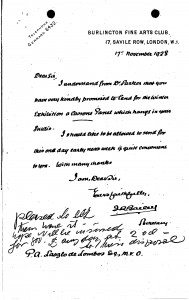 TELEPHONE
GERRARD 6492.
BURLINGTON FINE ARTS CLUB,
17, SAVILE ROW, LONDON, W.1.
17th November 1928
Dear Sir,
I understand from Mr. Parker that you
have very kindly promised to lend for the Winter
Exhibition a Panel which hangs in your
Studio.
I should like to be allowed to send for
this one day early next week if quite convenient
to you. With many thanks
I am, Dear Sir,
Yours faithfully,
Secretary
pleased to lett
them have it
P.A. Laszlo de Lombos Esq, M.V.O.